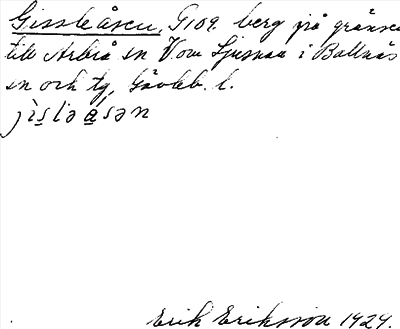 Gissleåsen, G109. berg på gränsen
till Arbrå sn V. om Ljusnan i Bollnäs
sn och tg, Gävleb. l.
jìs̱lə å̱sən
Erik Eriksson 1929.